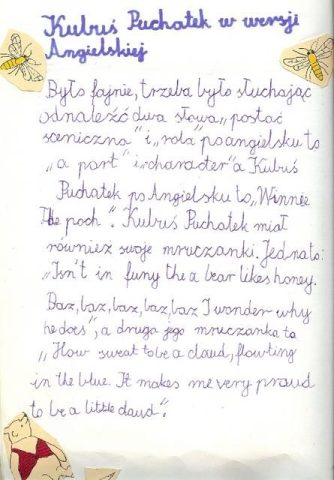 Kubuś Puchatek w wersji
Angielskiej
Było fajnie, trzeba było słuchając
odnaleźć dwa słowa „postać
sceniczna" i „rola" po angielsku to
„a part" i „character" a Kubuś
Puchatek po Angielsku to „Winnee
The pooh". Kubuś Puchatek miał
również swoje mruczanki. Jedna to:
„Isn't in funy the a bear likes honey.
Baz, baz, baz, baz, baz I wonder why
he does", a druga jego mruczanka to
„How sweat to be a claud, flowting
in the blue. It makes me very proud
to be a little claud".